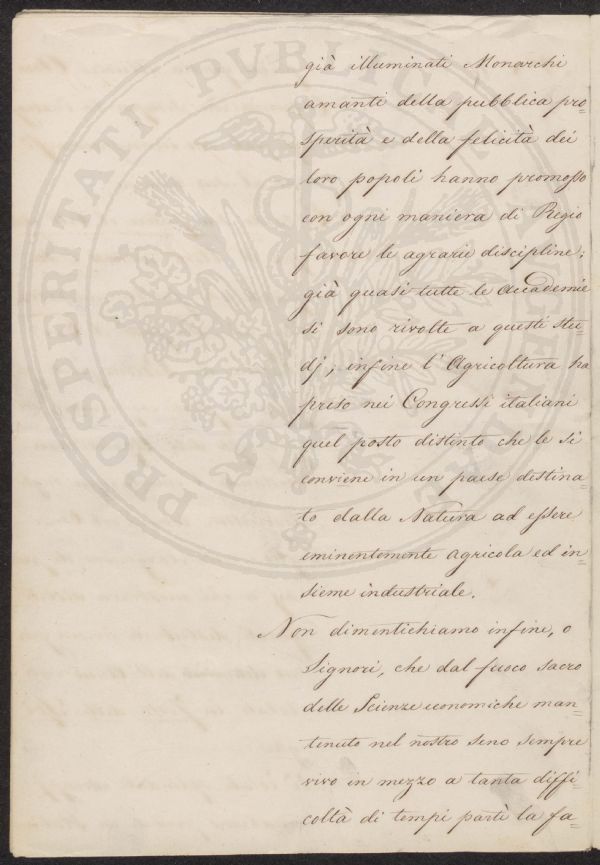 già illuminati Monarchi
amanti della pubblica pro=
sperità e della felicità dei
loro popoli hanno promosso
con ogni maniera di Regio
favore le agrarie discipline;
già quasi tutte le Accademie
si sono rivolte a questi stu=
dj; infine l'Agricoltura ha
preso nei Congressi italiani
quel posto distinto che le si
conviene in un paese destina=
to dalla Natura ad essere
eminentemente agricola ed in=
sieme industriale.
Non dimentichiamo infine, o
Signori, che dal fuoco sacro
delle Scienze economiche man=
tenuto nel nostro seno sempre
vivo in mezzo a tanta diffi=
coltà di tempi partì la fa=
PROSPERITATI PUBLICAE